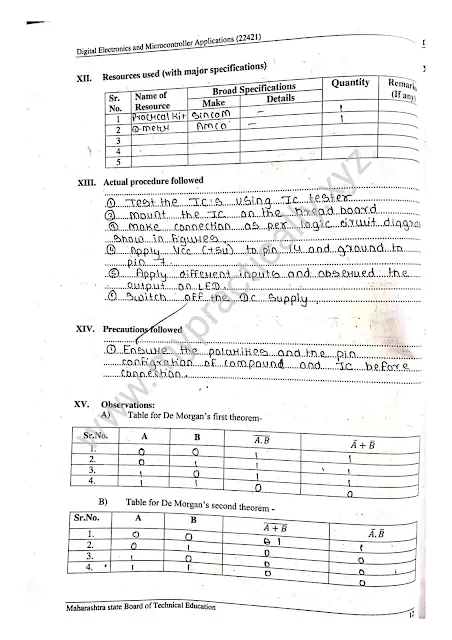 Digital Electronics and Microcontroller Applications (22421)
XII. Resources used (with major specifications)
Sr. No. Name of Resource Broad Specifications Quantity Remarks (If any)
Make Details
1 Practical kit Sincom – 1
2 D-meter Amco – 1
3
4
5
XIII. Actual procedure followed
① Test the IC's using IC tester
② Mount the IC on the bread board
③ make connection as per logic circuit diagra
show in figures.
④ Apply Vcc (+5v) to pin 14 and ground to
pin 7
⑤ Apply different inputs and observed the
output on LED.
⑥ Switch off the DC supply.
XIV. Precautions followed
① Ensure the polarities and the pin
configration of compound and IC before
connection.
XV. Observations:
A) Table for De Morgan's first theorem-
Sr.No. A B A̅.̅B̅ A̅ + B̅
1. 0 0 1 1
2. 0 1 1 1
3. 1 0 1 1
4. 1 1 0 0
B) Table for De Morgan's second theorem -
Sr.No. A B A̅ ̅+̅ ̅B̅ A̅.B̅
1. 0 0 1 1
2. 0 1 0 0
3. 1 0 0 0
4. 1 1 0 0
Maharashtra state Board of Technical Education
www.mypractically.xyz